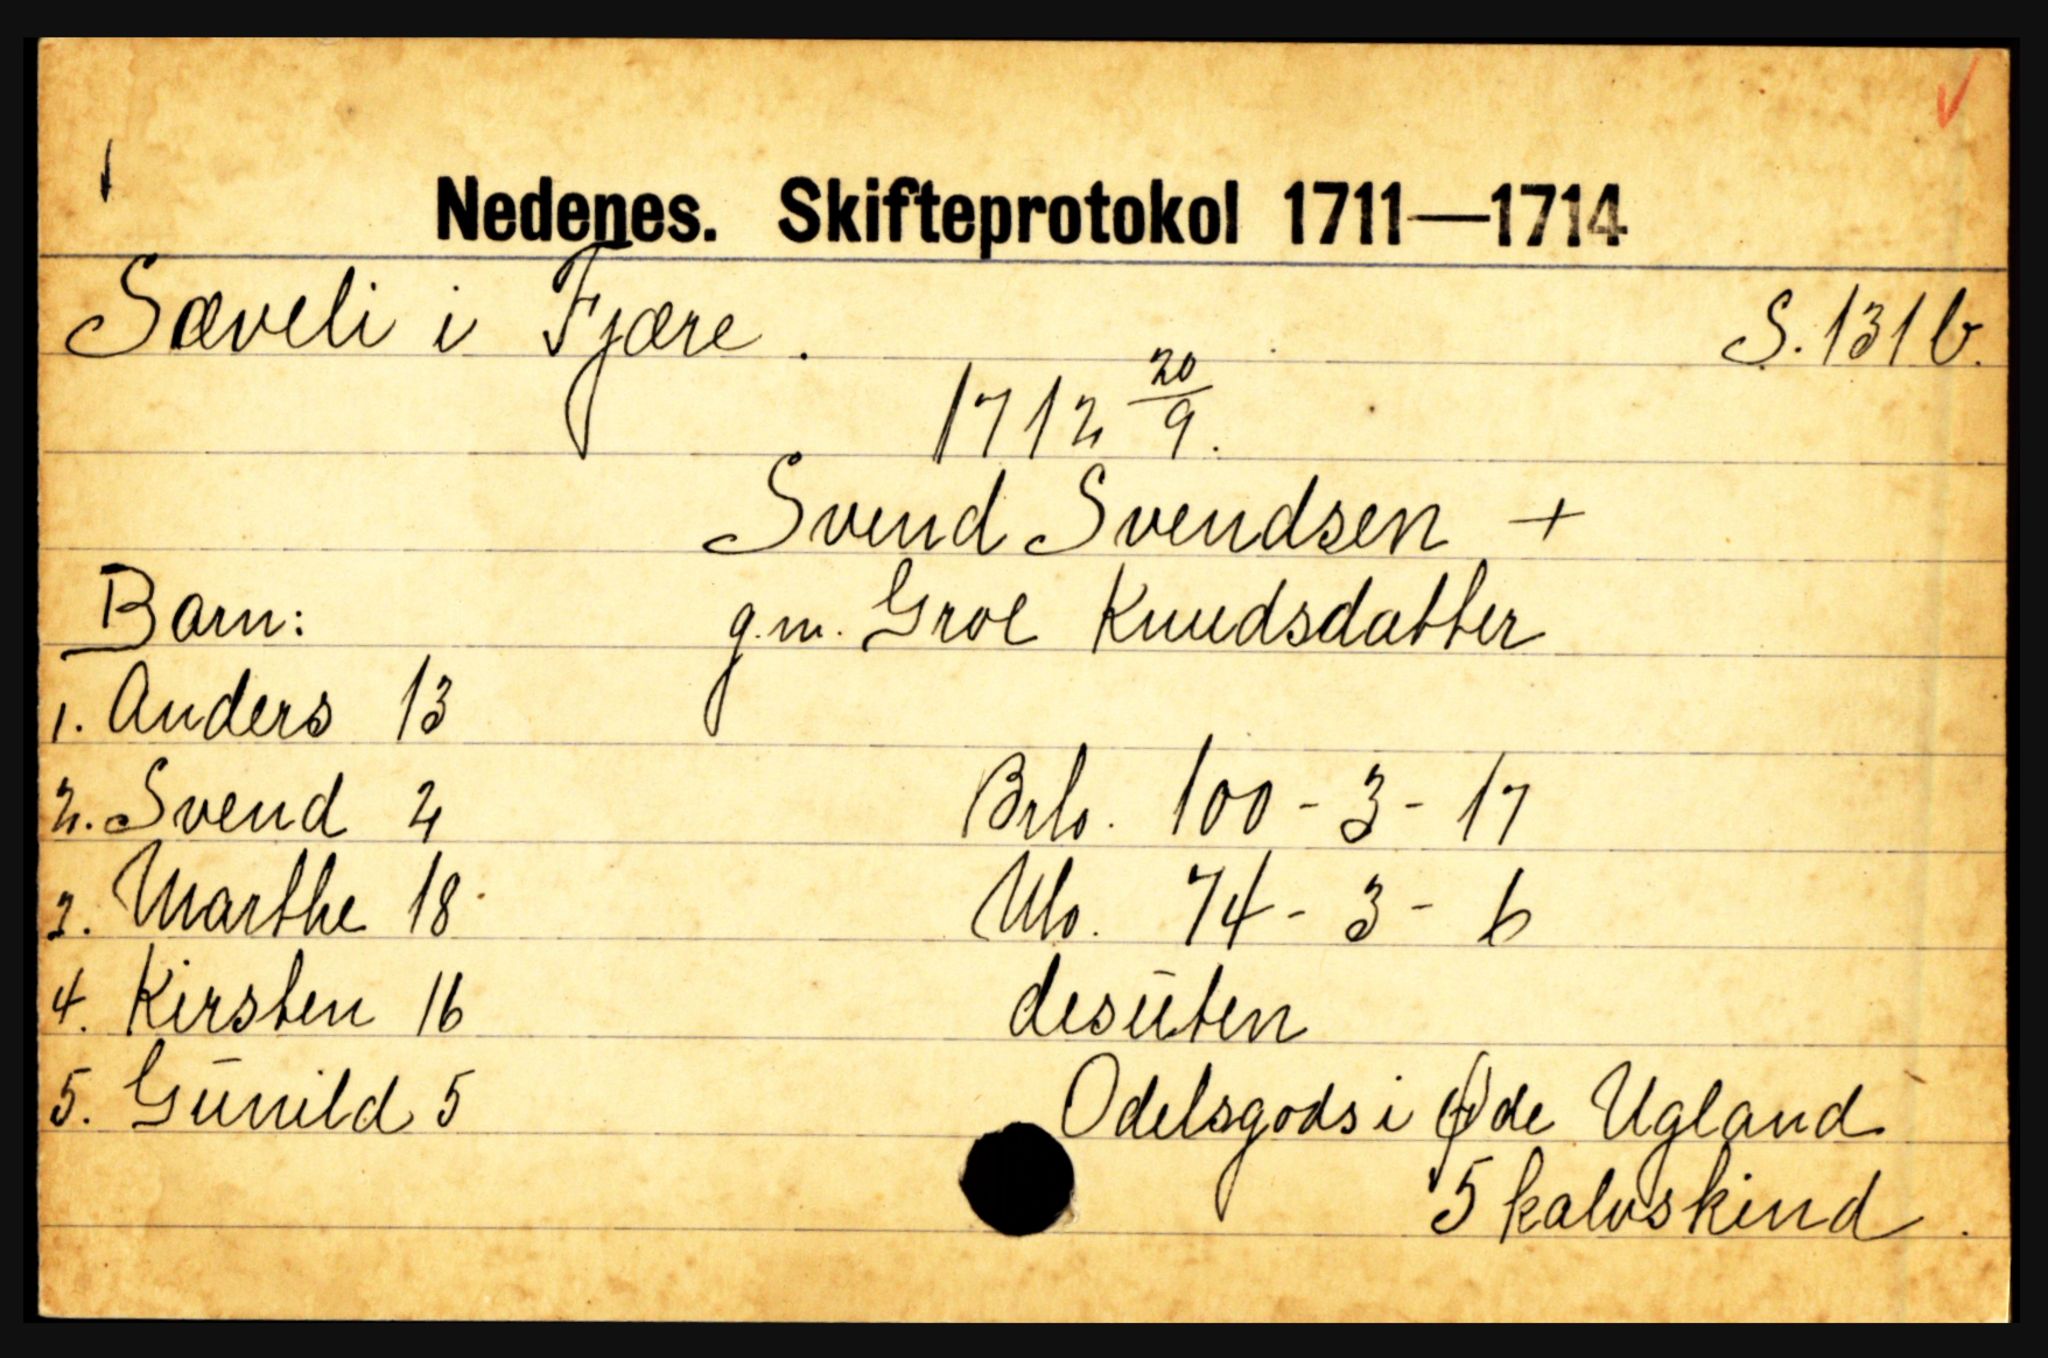 Nedenes. Skifteprotokol 1711—1714
Sæveli i Fjære. S. 131 b.
1712 20/9.
Svend Svendsen +
Barn: g.m. Groe Knudsdatter
1. Anders 13
2. Svend 2 Brb. 100 - 3 - 17
3. Marthe 18 Nb. 74 - 3 - 6
4. Kirsten 16 desuten
5. Gunild 5 Odelsgods i Øde Ugland
5 kalvskind.